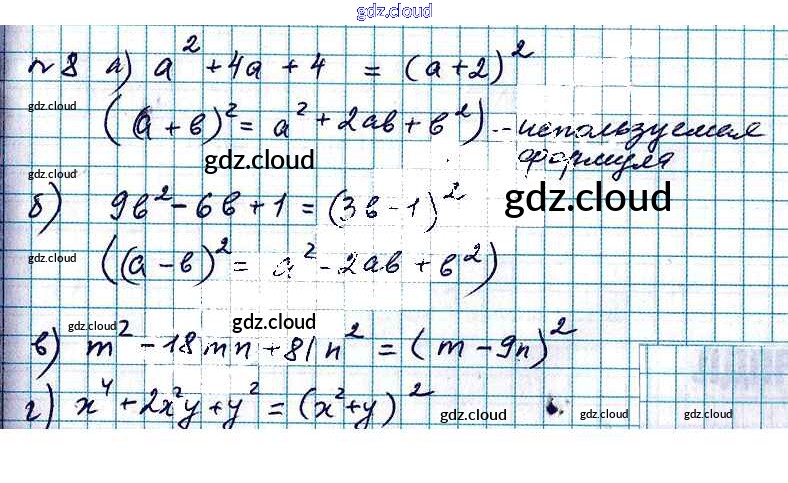 gdz.cloud
№8 а) a² + 4a + 4 = (a+2)²
gdz.cloud
((a+в)² = a² + 2aв + в²) - используемая
формула
gdz.cloud
gdz.cloud
gdz.cloud
б) 9в² - 6в + 1 = (3в - 1)²
gdz.cloud
((a - в)² = a² - 2aв + в²)
gdz.cloud
gdz.cloud
в) m² - 18mn + 81n² = (m - 9n)²
г) x⁴ + 2x²y + y² = (x²+y)²
gdz.cloud
gdz.cloud
gdz.cloud
gdz.cloud